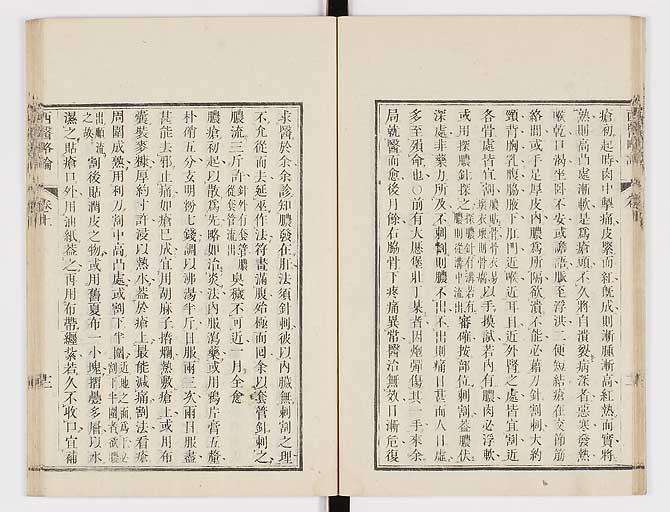 瘡初起時肉中掣痛皮緊而紅旣成則漸腫漸高紅熱而實將
熟則高凸處漸軟是爲瘡頭不久將自潰裂病深者惡寒發熱
喉乾口渴坐卧不安或譫語脈至浮洪二便短結瘡在交節筋
絡間或手足厚皮內膿爲所隔欲潰不能必藉刀針割刺大約
頸背胸乳腹脇腋下肛門近喉近耳目近外腎之處皆宜割近
各骨處皆宜割膿貼骨骨衣易壞衣壞則骨腐以手摸試若內有膿肉必浮軟
或用探膿針探之探膿針有溝若有膿則從溝中流出審確按部位刺割蓋膿伏
深處非藥力所及不刺割則膿不出不出則痛日甚而人日虛
多至殞命也〇前有大屋堡壯丁某者因炮彈傷其一手來余
局就醫而愈後月餘右脇骨下疼痛異常醫治無效日漸危復
求醫於余余診知膿發在肝法須針刺彼以內臟無刺割之理
不允從而去延巫作法符畫滿腹始極而回余以套管針刺之
膿流三斤許針外有套管膿從套管流出臭穢不可近一月全愈
膿瘡初起以散爲先略如治炎法內服瀉藥或用鴉片膏五釐
朴硝五分玄明粉七錢調以沸湯半斤日服兩三次兩日服盡
甚能去邪止痛如瘡已成宜用胡麻子搗爛熱敷瘡上或用布
囊裝麥糠厚約寸許浸以熱水蓋於瘡上最能減痛割法看瘡
周圍成熟用利刀割中高凸處或割下半圍
出順流之故割後貼潤皮之物或用舊夏布一小塊摺疊多層以水
濕之貼瘡口外用油紙蓋之再用布帶纏紮若久不收口宜補
西醫略論
卷中